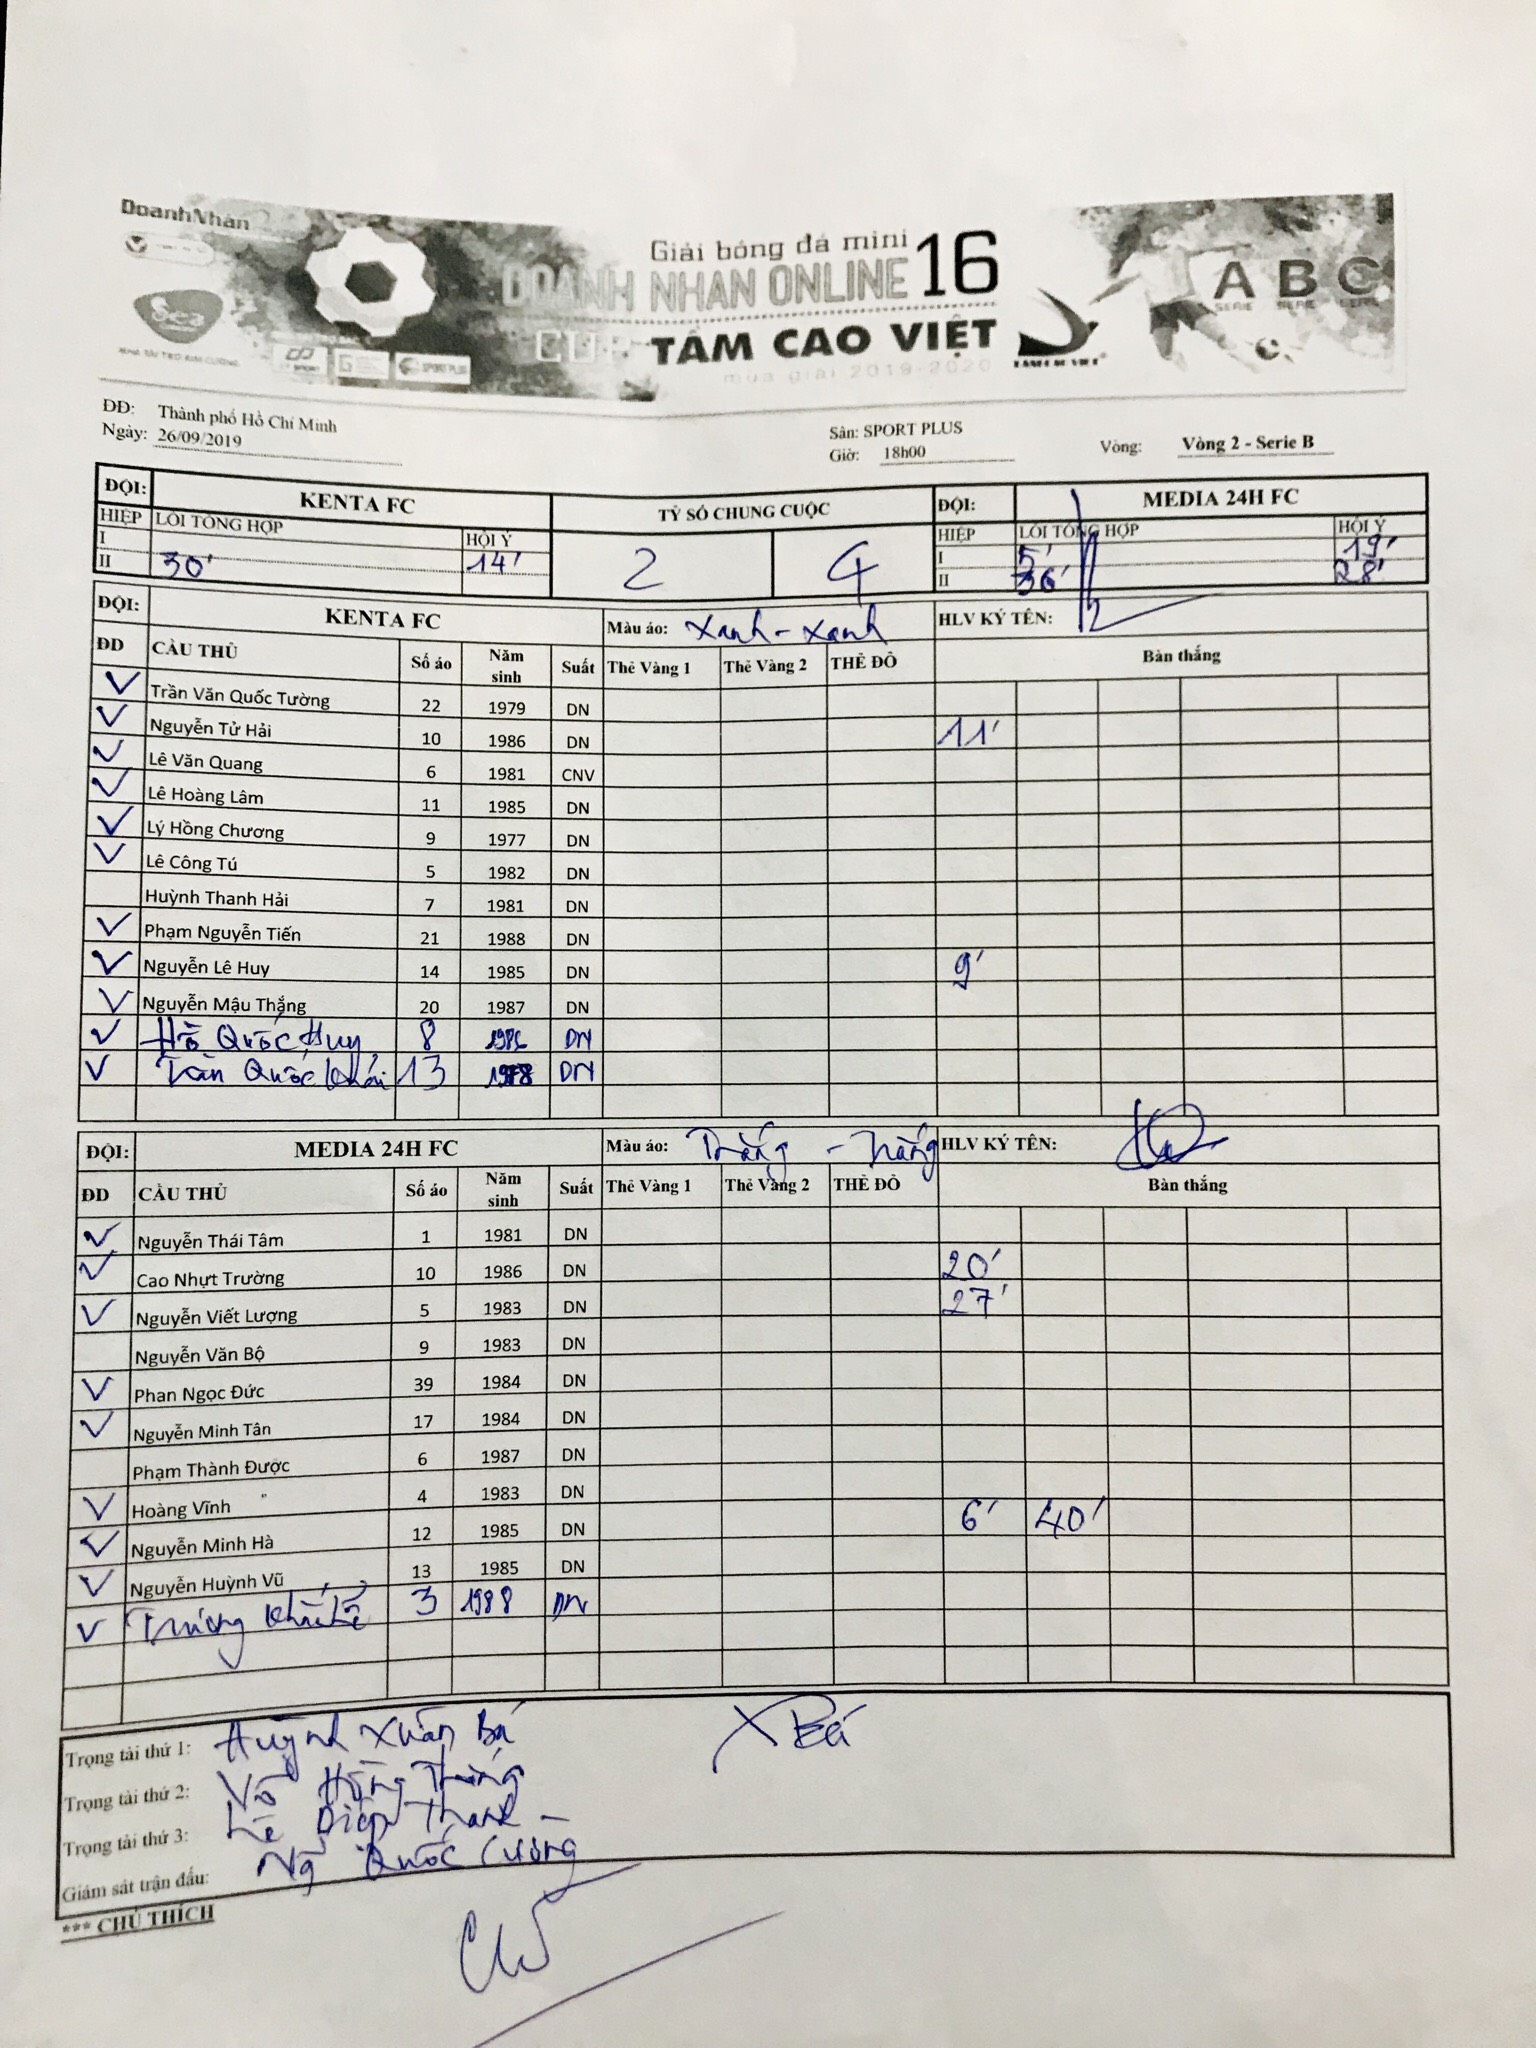 DoanhNhân
Giải bóng đá mini
DOANH NHAN ONLINE 16
CUP TẦM CAO VIỆT
mùa giải 2019-2020
A B C
SERIE SERIE SERIE
Sea
NHÀ TÀI TRỢ KIM CƯƠNG
SPORT PLUS
TAM CAO VIET
ĐĐ: Thành phố Hồ Chí Minh
Ngày: 26/09/2019
Sân: SPORT PLUS
Giờ: 18h00
Vòng: Vòng 2 - Serie B
ĐỘI: KENTA FC TỶ SỐ CHUNG CUỘC ĐỘI: MEDIA 24H FC
HIỆP LỖI TỔNG HỢP HỘI Ý 2 4 HIỆP LỖI TỔNG HỢP HỘI Ý
I I 5' 19'
II 30' 14' II 36' 28'
ĐỘI: KENTA FC Màu áo: Xanh - Xanh HLV KÝ TÊN:
ĐD CẦU THỦ Số áo Năm sinh Suất Thẻ Vàng 1 Thẻ Vàng 2 THẺ ĐỎ Bàn thắng
Trần Văn Quốc Tường 22 1979 DN
Nguyễn Tử Hải 10 1986 DN 11'
Lê Văn Quang 6 1981 CNV
Lê Hoàng Lâm 11 1985 DN
Lý Hồng Chương 9 1977 DN
Lê Công Tú 5 1982 DN
Huỳnh Thanh Hải 7 1981 DN
Phạm Nguyễn Tiến 21 1988 DN
Nguyễn Lê Huy 14 1985 DN 9'
Nguyễn Mậu Thắng 20 1987 DN
Hồ Quốc Huy 8 DN
Trần Quốc Khải 13 DN
ĐỘI: MEDIA 24H FC Màu áo: Trắng - Trắng HLV KÝ TÊN:
ĐD CẦU THỦ Số áo Năm sinh Suất Thẻ Vàng 1 Thẻ Vàng 2 THẺ ĐỎ Bàn thắng
Nguyễn Thái Tâm 1 1981 DN
Cao Nhựt Trường 10 1986 DN 20'
Nguyễn Viết Lượng 5 1983 DN 27'
Nguyễn Văn Bộ 9 1983 DN
Phan Ngọc Đức 39 1984 DN
Nguyễn Minh Tân 17 1984 DN
Phạm Thành Được 6 1987 DN
Hoàng Vĩnh 4 1983 DN
Nguyễn Minh Hà 12 1985 DN 6' 40'
Nguyễn Huỳnh Vũ 13 1985 DN
Trương 3 1988 DN
Trọng tài thứ 1: Huỳnh Xuân Bá XBá
Trọng tài thứ 2: Võ Hồng
Trọng tài thứ 3: Lê Diệp Thanh
Giám sát trận đấu: Ng Quốc Cường
*** CHÚ THÍCH